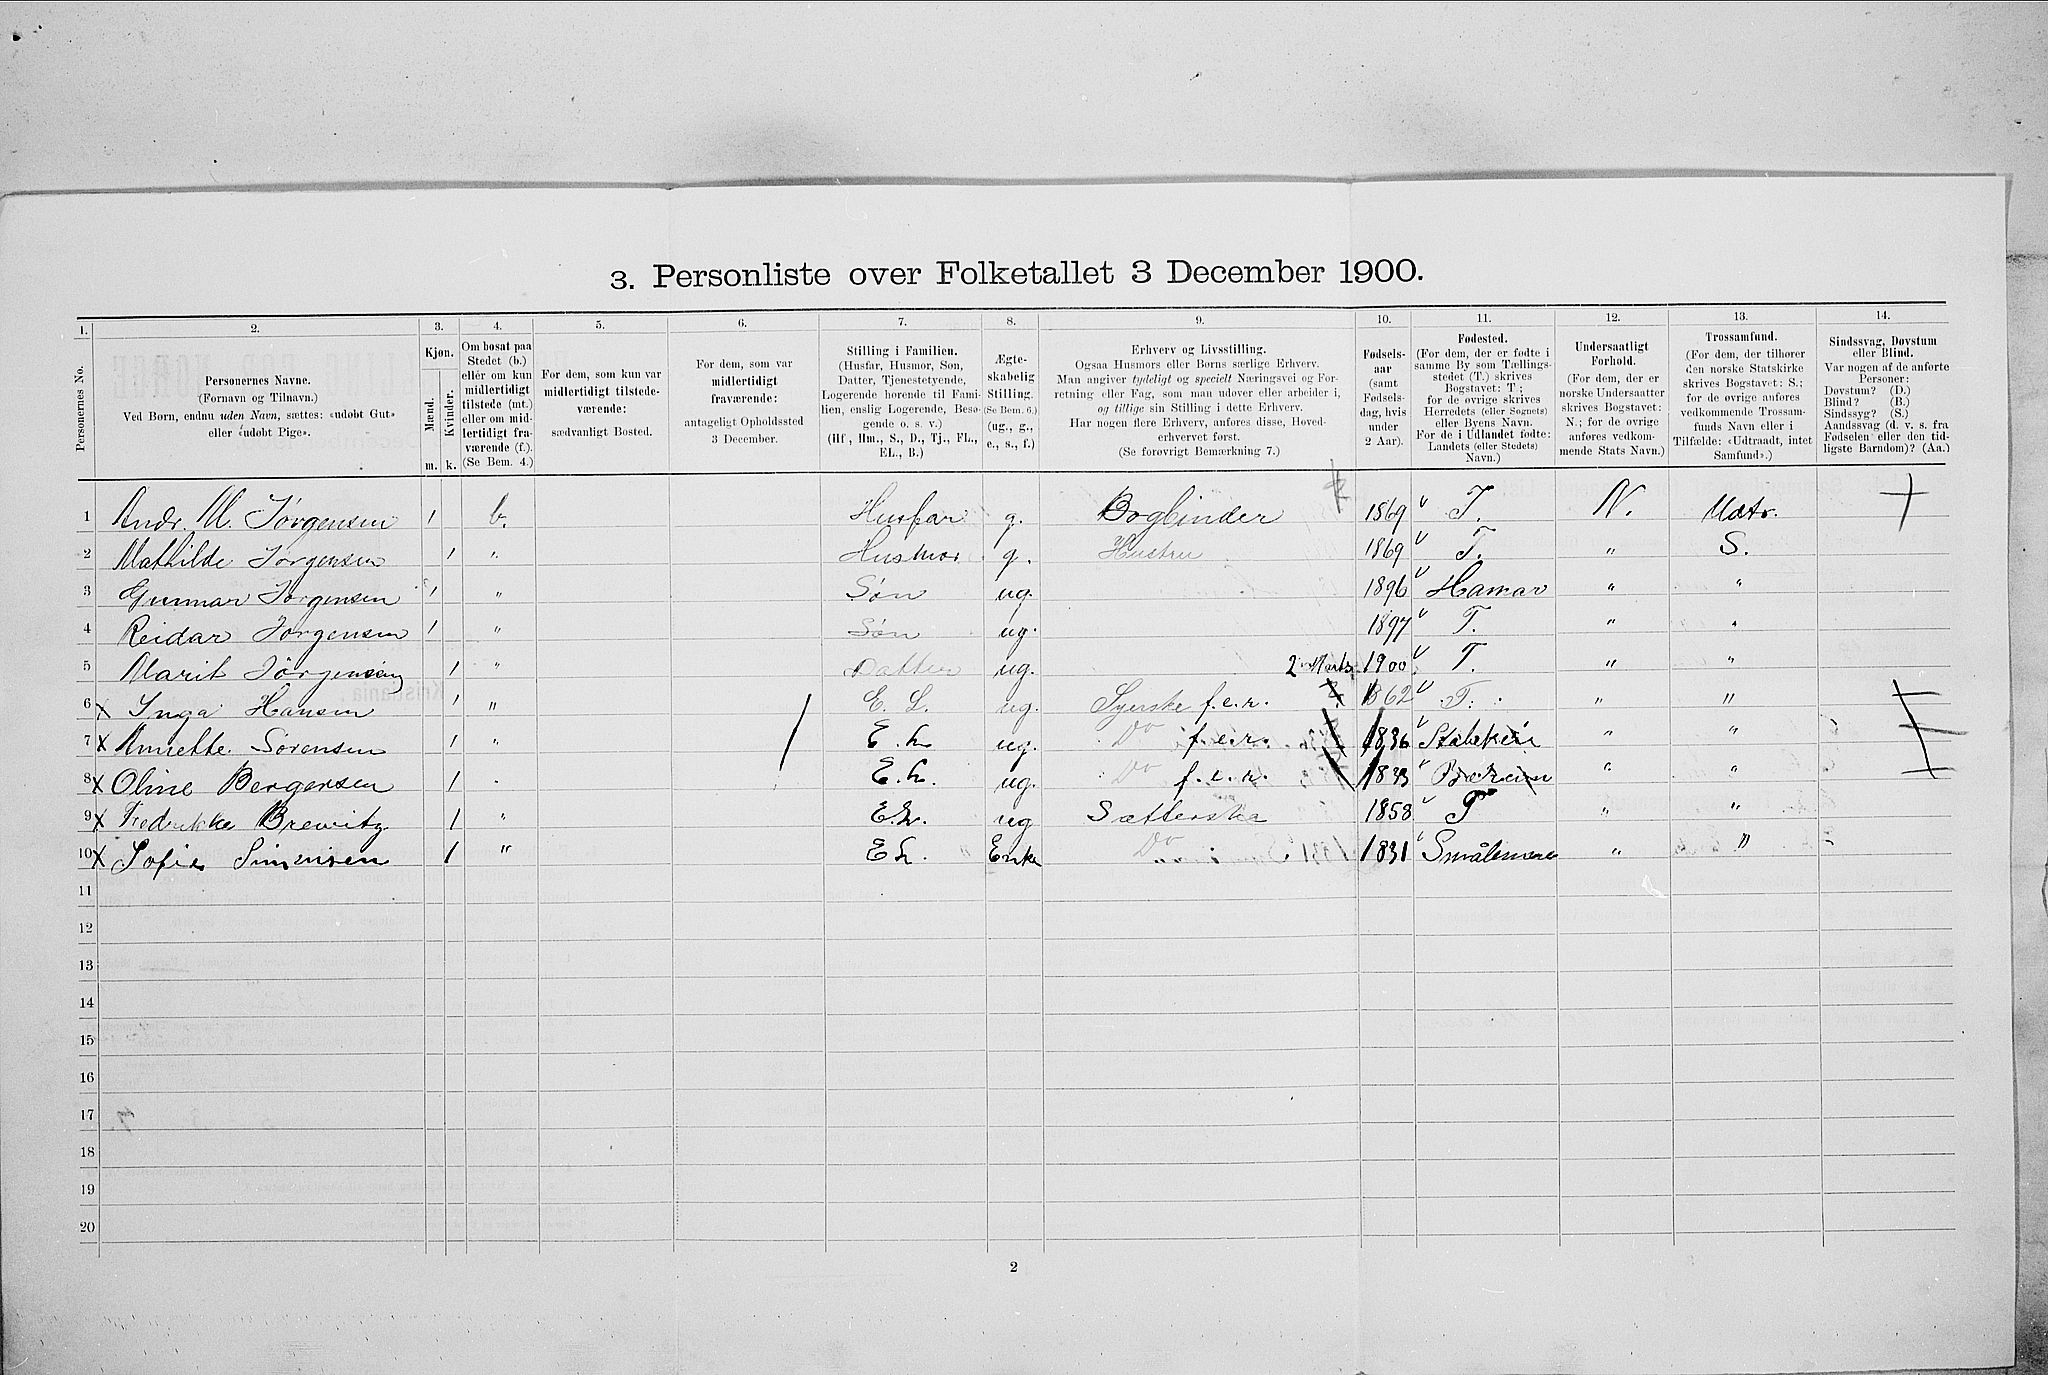 3. Personliste over Folketallet 3 December 1900.
1. 2. 3. 4. 5. 6. 7. 8. 9. 10. 11. 12. 13. 14.
Personernes No.
Personernes Navne.
(Fornavn og Tilnavn.)
Ved Børn, endnu uden Navn, sættes: «udøbt Gut»
eller «udøbt Pige».
Kjøn.
Mænd.
Kvinder.
m. k.
Om bosat paa
Stedet (b.)
eller om kun
midlertidigt
tilstede (mt.)
eller om mid-
lertidigt fra-
værende (f.).
(Se Bem. 4.)
For dem, som kun var
midlertidigt tilstede-
værende:
sædvanligt Bosted.
For dem, som var
midlertidigt
fraværende:
antageligt Opholdssted
3 December.
Stilling i Familien.
(Husfar, Husmor, Søn,
Datter, Tjenestetyende,
Logerende hørende til Fami-
lien, enslig Logerende, Besø-
gende o. s. v.)
(Hf, Hm., S., D., Tj., FL.,
EL., B.)
Ægte-
skabelig
Stilling.
(Se Bem. 6.)
(ug., g.,
e., s., f.)
Erhverv og Livsstilling.
Ogsaa Husmors eller Børns særlige Erhverv.
Man angiver tydeligt og specielt Næringsvei og For-
retning eller Fag, som man udøver eller arbeider i,
og tillige sin Stilling i dette Erhverv.
Har nogen flere Erhverv, anføres disse, Hoved-
erhvervet først.
(Se forøvrigt Bemærkning 7.)
Fødsels-
aar
(samt
Fødsels-
dag, hvis
under
2 Aar).
Fødested.
(For dem, der er fødte i
samme By som Tællings-
stedet (T.) skrives
Bogstavet: T.;
for de øvrige skrives
Herredets (eller Sognets)
eller Byens Navn.
For de i Udlandet fødte:
Landets (eller Stedets)
Navn.)
Undersaatligt
Forhold.
(For dem, der er
norske Undersaatter
skrives Bogstavet:
N.; for de øvrige
anføres vedkom-
mende Stats Navn.)
Trossamfund.
(For dem, der tilhører
den norske Statskirke
skrives Bogstavet: S.;
for de øvrige anføres
vedkommende Trossam-
funds Navn eller i
Tilfælde: «Udtraadt, intet
Samfund».)
Sindssvag, Døvstum
eller Blind.
Var nogen af de anførte
Personer:
Døvstum? (D.)
Blind? (B.)
Sindssyg? (S.)
Aandssvag (d. v. s. fra
Fødselen eller den tid-
ligste Barndom)? (Aa.)
1 Andr. M. Jørgensen 1 b. Husfar g. Bogbinder 1869 T. N. Udtr.
2 Mathilde Jørgensen 1 " Husmor g. Hustru 1869 T. " S.
3 Gunnar Jørgensen 1 " Søn ug. 1896 Hamar " "
4 Reidar Jørgensen 1 " Søn ug. 1897 T. " "
5 Marit Jørgensen 1 " Datter ug. 2 Marts 1900 T. " "
6 x Inga Hansen 1 " E. L. ug. Syerske f.e.r. 1862 T. " "
7 x Annette Sørensen 1 " E. L. ug. Do f.e.r. 1836 " "
8 x Oline Bergersen 1 " E. L. ug. Do f.e.r. 1833 " "
9 x Fredrikke Brewitz 1 " E. L. ug Sætterske 1858 T " "
10 x Sofie Simensen 1 " E L. Enke Do " 1831 Smålenene " "
11
12
13
14
15
16
17
18
19
20
2